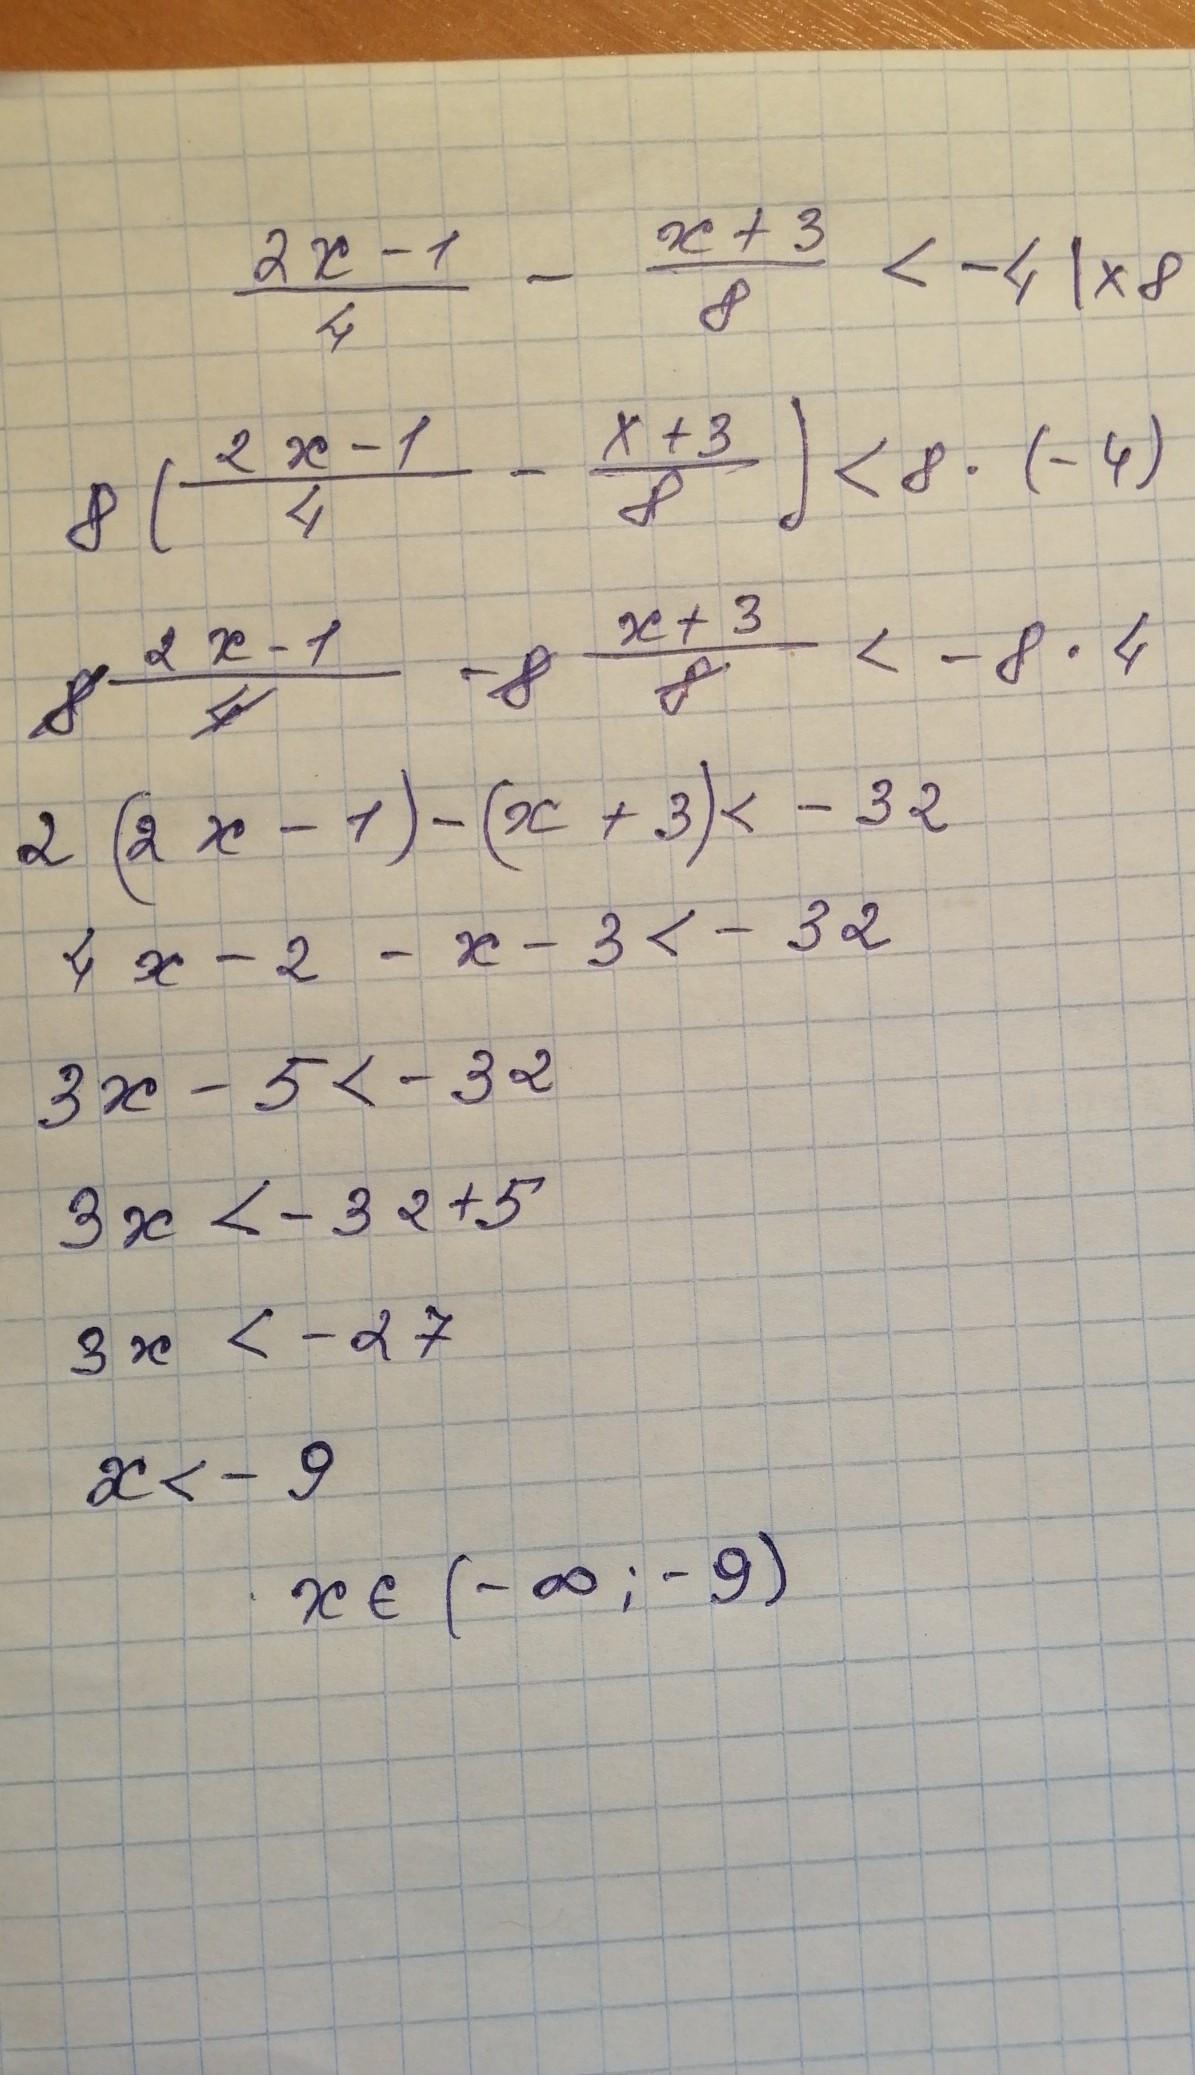 (2x-1)/4 - (x+3)/8 < -4 | ×8
8((2x-1)/4 - (x+3)/8) < 8·(-4)
8 (2x-1)/4 - 8 (x+3)/8 < -8·4
2(2x-1)-(x+3)< -32
4x-2-x-3<-32
3x-5<-32
3x<-32+5
3x<-27
x<-9
x∈(-∞;-9)